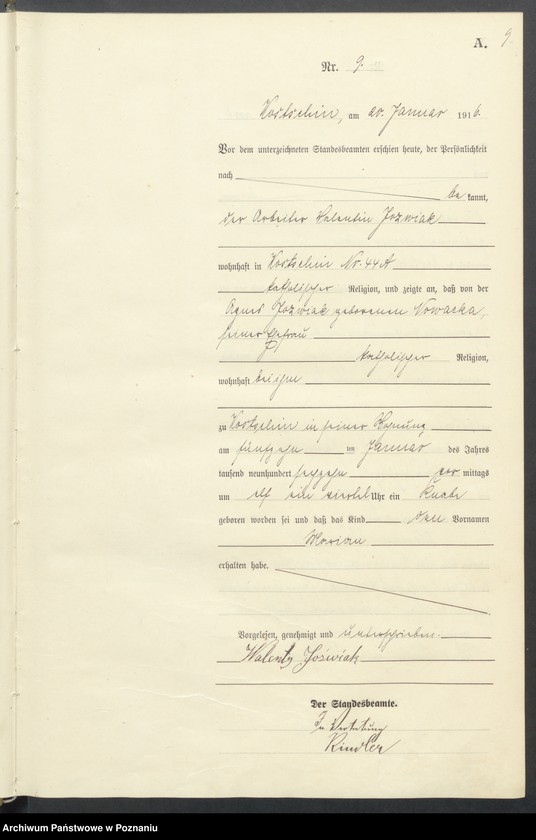 9.
A.
Nr. 9.
Kostschin, am 20. Januar 1916.
Vor dem unterzeichneten Standesbeamten erschien heute, der Persönlichkeit
nach
be kannt,
der Arbeiter Valentin Jozwiak
wohnhaft in Kostschin Nr. 44A
katholischer Religion, und zeigte an, daß von der
Agnes Jozwiak geborenen Nowacka,
seiner Ehefrau
katholischer Religion,
wohnhaft bei ihm
zu Kostschin in seiner Wohnung
am fünfzehn ten Januar des Jahres
tausend neunhundert sechzehn vor mittags
um elf ein viertel Uhr ein Knabe
geboren worden sei und daß das Kind den Vornamen
Marian
erhalten habe.
Vorgelesen, genehmigt und unterschrieben.
Walenty Jóźwiak
Der Standesbeamte.
In Vertretung
Archiwum Państwowe w Poznaniu